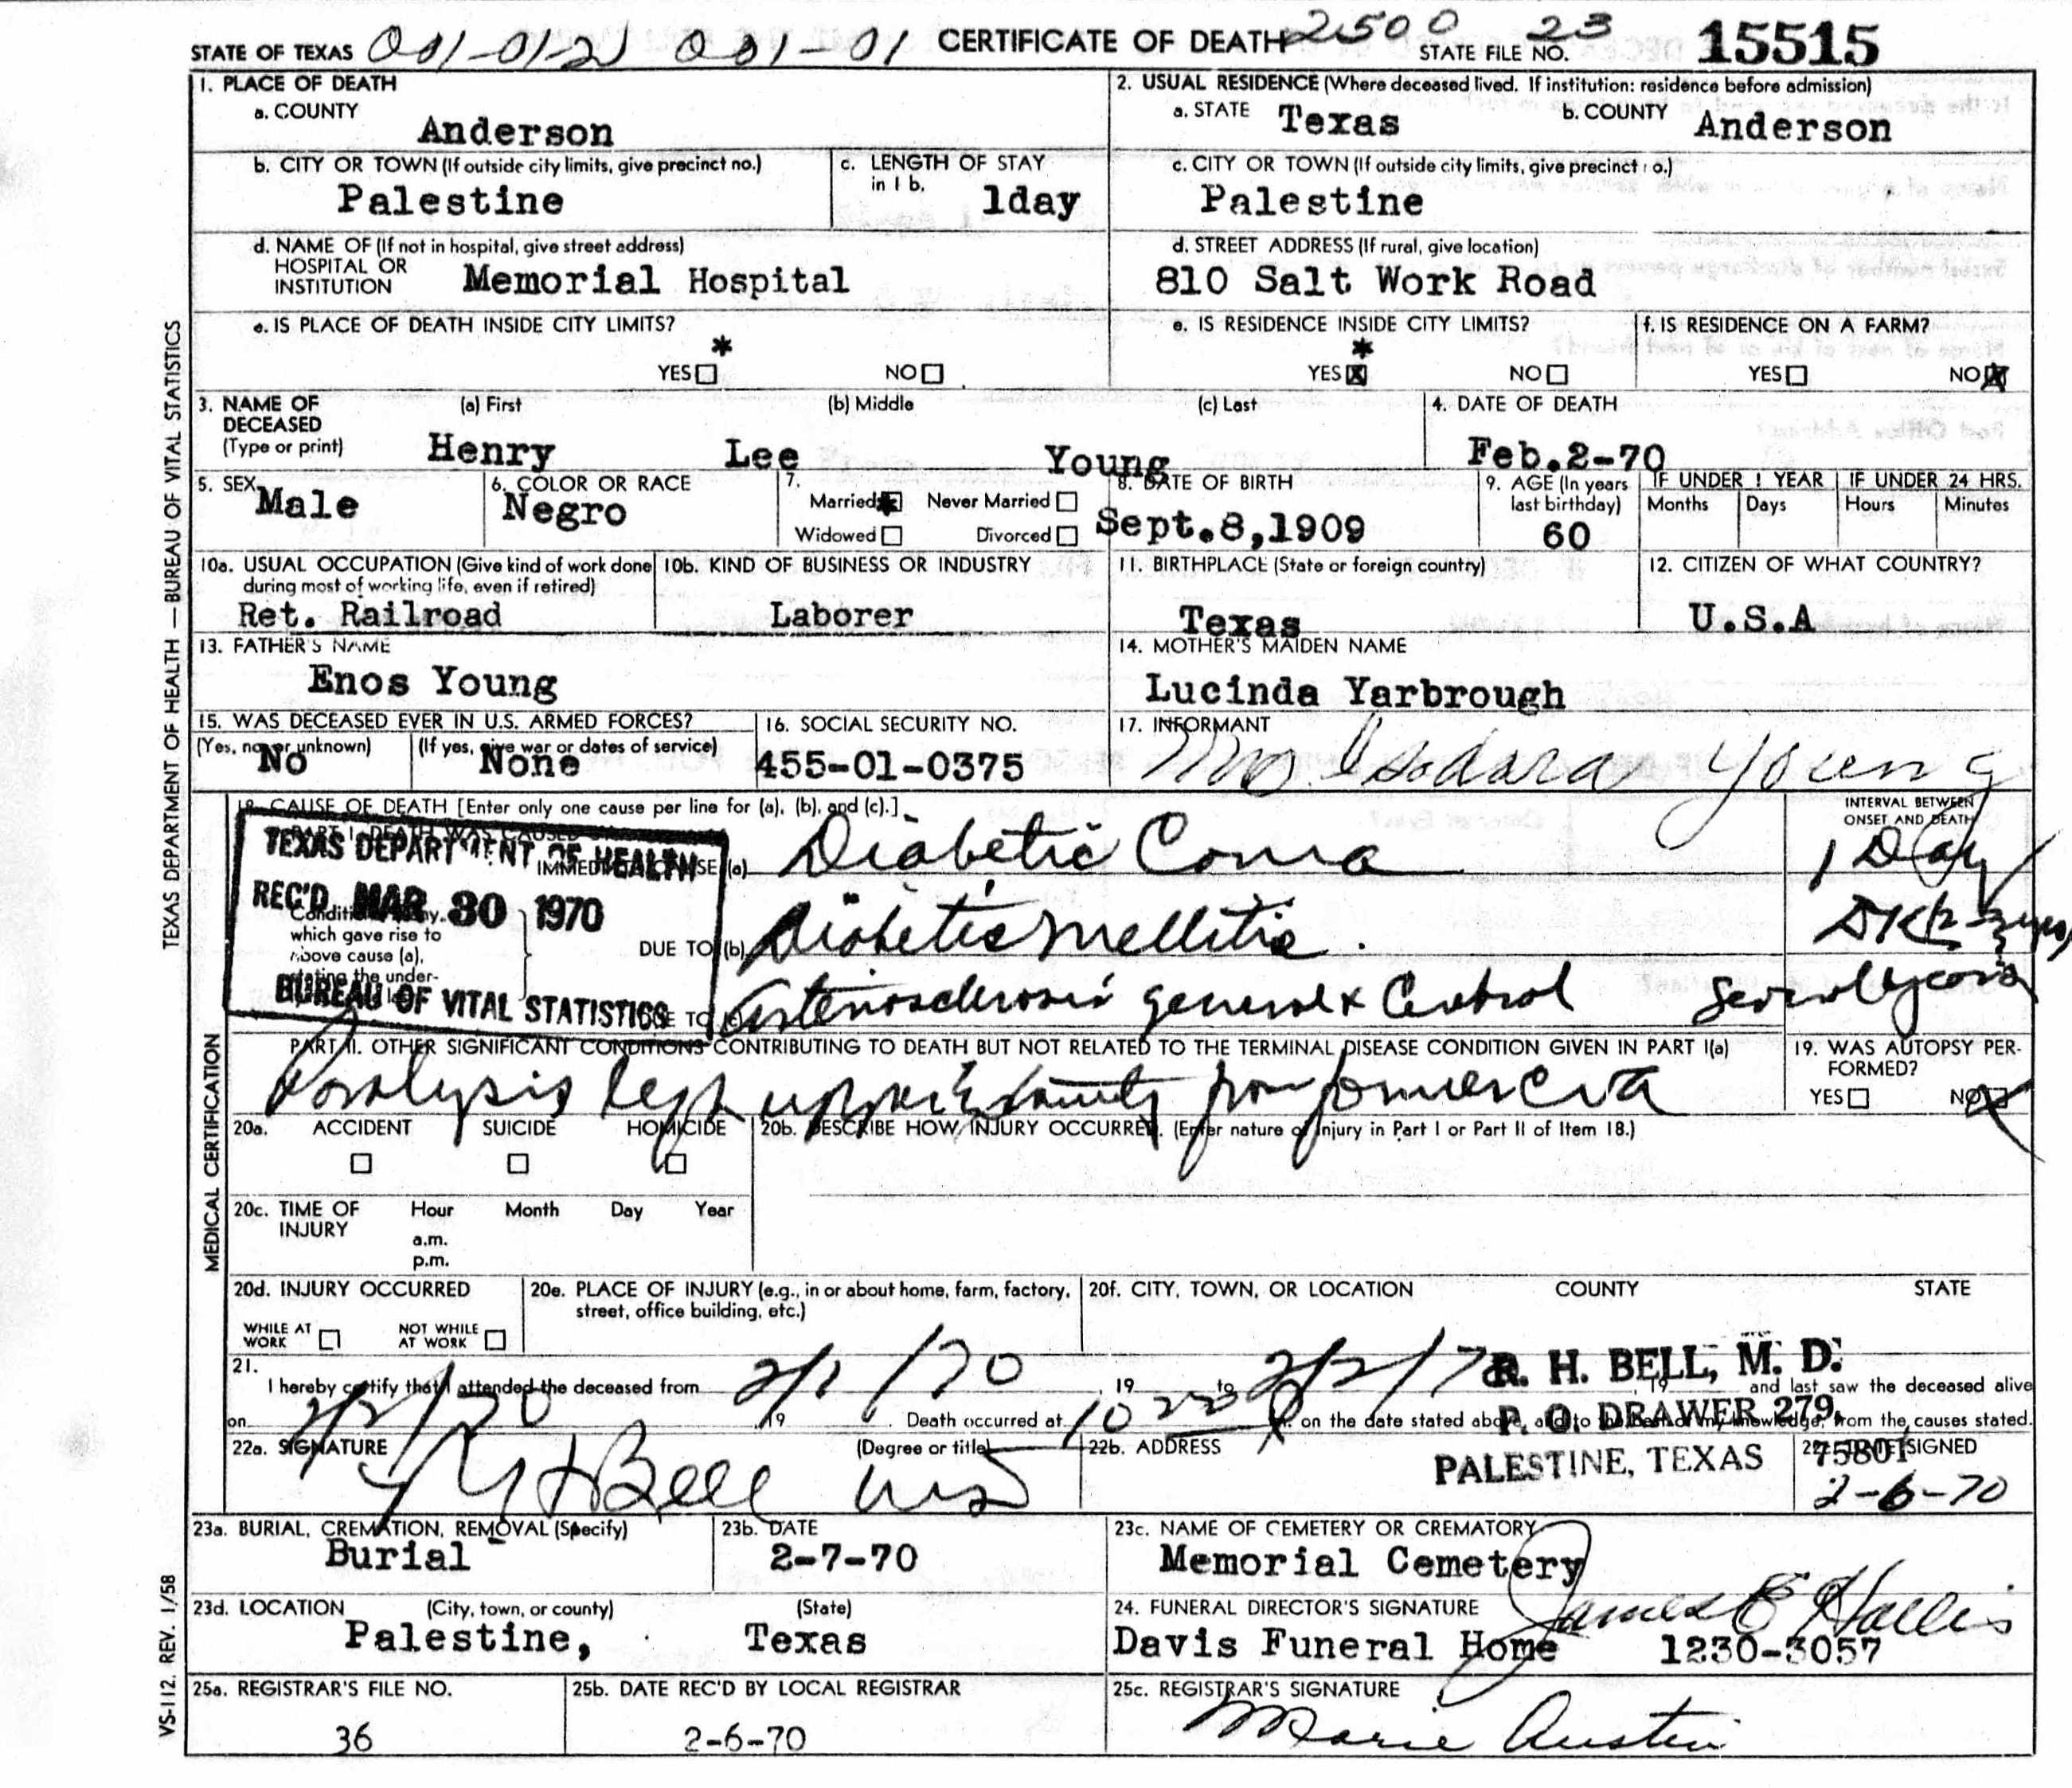 STATE OF TEXAS 001-01-21 001-01 CERTIFICATE OF DEATH 2500 STATE FILE NO. 23 15515
1. PLACE OF DEATH
a. COUNTY Anderson
2. USUAL RESIDENCE (Where deceased lived. If institution: residence before admission)
a. STATE Texas b. COUNTY Anderson
b. CITY OR TOWN (If outside city limits, give precinct no.) Palestine
c. LENGTH OF STAY in 1 b. 1day
c. CITY OR TOWN (If outside city limits, give precinct no.) Palestine
d. NAME OF (If not in hospital, give street address)
HOSPITAL OR
INSTITUTION Memorial Hospital
d. STREET ADDRESS (If rural, give location)
810 Salt Work Road
e. IS PLACE OF DEATH INSIDE CITY LIMITS?
*
YES NO
e. IS RESIDENCE INSIDE CITY LIMITS?
*
YES X NO
f. IS RESIDENCE ON A FARM?
YES NO X
3. NAME OF
DECEASED
(Type or print)
(a) First (b) Middle (c) Last
Henry Lee Young
4. DATE OF DEATH
Feb.2-70
5. SEX Male
6. COLOR OR RACE
Negro
7.
Married Never Married
Widowed Divorced
8. DATE OF BIRTH
Sept.8,1909
9. AGE (In years
last birthday)
60
IF UNDER 1 YEAR IF UNDER 24 HRS.
Months Days Hours Minutes
10a. USUAL OCCUPATION (Give kind of work done
during most of working life, even if retired)
Ret. Railroad
10b. KIND OF BUSINESS OR INDUSTRY
Laborer
11. BIRTHPLACE (State or foreign country)
Texas
12. CITIZEN OF WHAT COUNTRY?
U.S.A
13. FATHER'S NAME
Enos Young
14. MOTHER'S MAIDEN NAME
Lucinda Yarbrough
15. WAS DECEASED EVER IN U.S. ARMED FORCES?
(Yes, no, or unknown) (If yes, give war or dates of service)
No None
16. SOCIAL SECURITY NO.
455-01-0375
17. INFORMANT
Mrs. Isadara Young
18. CAUSE OF DEATH [Enter only one cause per line for (a), (b), and (c).]
PART I. DEATH WAS CAUSED
IMMEDIATE CAUSE (a) Diabetic Coma
INTERVAL BETWEEN
ONSET AND DEATH
1 Day
TEXAS DEPARTMENT OF HEALTH
REC'D MAR 30 1970
BUREAU OF VITAL STATISTICS
Conditions, if any,
which gave rise to
above cause (a),
stating the under-
DUE TO (b) Diabetes mellitis.
DUE TO (c) arteriosclerosis general &
PART II. OTHER SIGNIFICANT CONDITIONS CONTRIBUTING TO DEATH BUT NOT RELATED TO THE TERMINAL DISEASE CONDITION GIVEN IN PART I(a)
Paralysis left upper extremity from former CVA
19. WAS AUTOPSY PER-
FORMED?
YES NO X
20a. ACCIDENT SUICIDE HOMICIDE
20b. DESCRIBE HOW INJURY OCCURRED. (Enter nature of injury in Part I or Part II of Item 18.)
20c. TIME OF
INJURY
Hour Month Day Year
a.m.
p.m.
20d. INJURY OCCURRED
WHILE AT
WORK
NOT WHILE
AT WORK
20e. PLACE OF INJURY (e.g., in or about home, farm, factory,
street, office building, etc.)
20f. CITY, TOWN, OR LOCATION COUNTY STATE
21.
I hereby certify that I attended the deceased from 2/1/70, 19 to 2/2/7 , 19 and last saw the deceased alive
on 2/2/70 , 19 . Death occurred at 10 m. on the date stated above, and to the best of my knowledge, from the causes stated.
R. H. BELL, M. D.
P. O. DRAWER 279,
PALESTINE, TEXAS 75801
22a. SIGNATURE (Degree or title)
R H Bell MD
22b. ADDRESS
22c. DATE SIGNED
2-6-70
23a. BURIAL, CREMATION, REMOVAL (Specify)
Burial
23b. DATE
2-7-70
23c. NAME OF CEMETERY OR CREMATORY
Memorial Cemetery
23d. LOCATION (City, town, or county) (State)
Palestine, Texas
24. FUNERAL DIRECTOR'S SIGNATURE James E Hallis
Davis Funeral Home 1230-3057
25a. REGISTRAR'S FILE NO.
36
25b. DATE REC'D BY LOCAL REGISTRAR
2-6-70
25c. REGISTRAR'S SIGNATURE
Marie Austin
TEXAS DEPARTMENT OF HEALTH — BUREAU OF VITAL STATISTICS
MEDICAL CERTIFICATION
VS-112. REV. 1/58